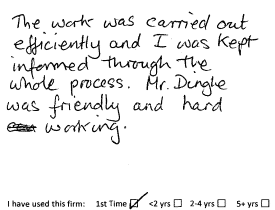 The work was carried out
efficiently and I was kept
informed through the
whole process. Mr. Dinghe
was friendly and hard
working.
I have used this firm: 1st Time ☑ <2 yrs ☐ 2-4 yrs ☐ 5+ yrs ☐